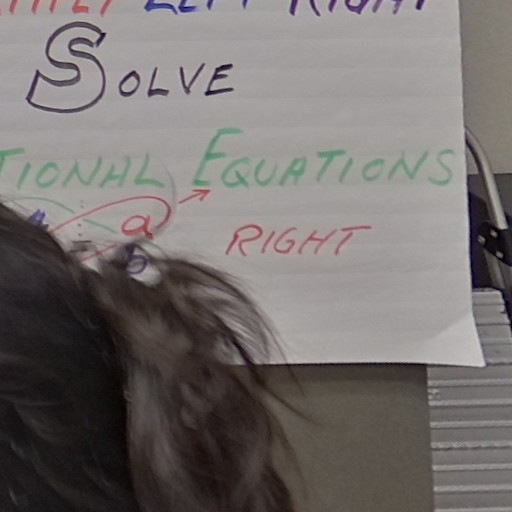 LEFT RIGHT
SOLVE
EQUATIONS
a
RIGHT
b